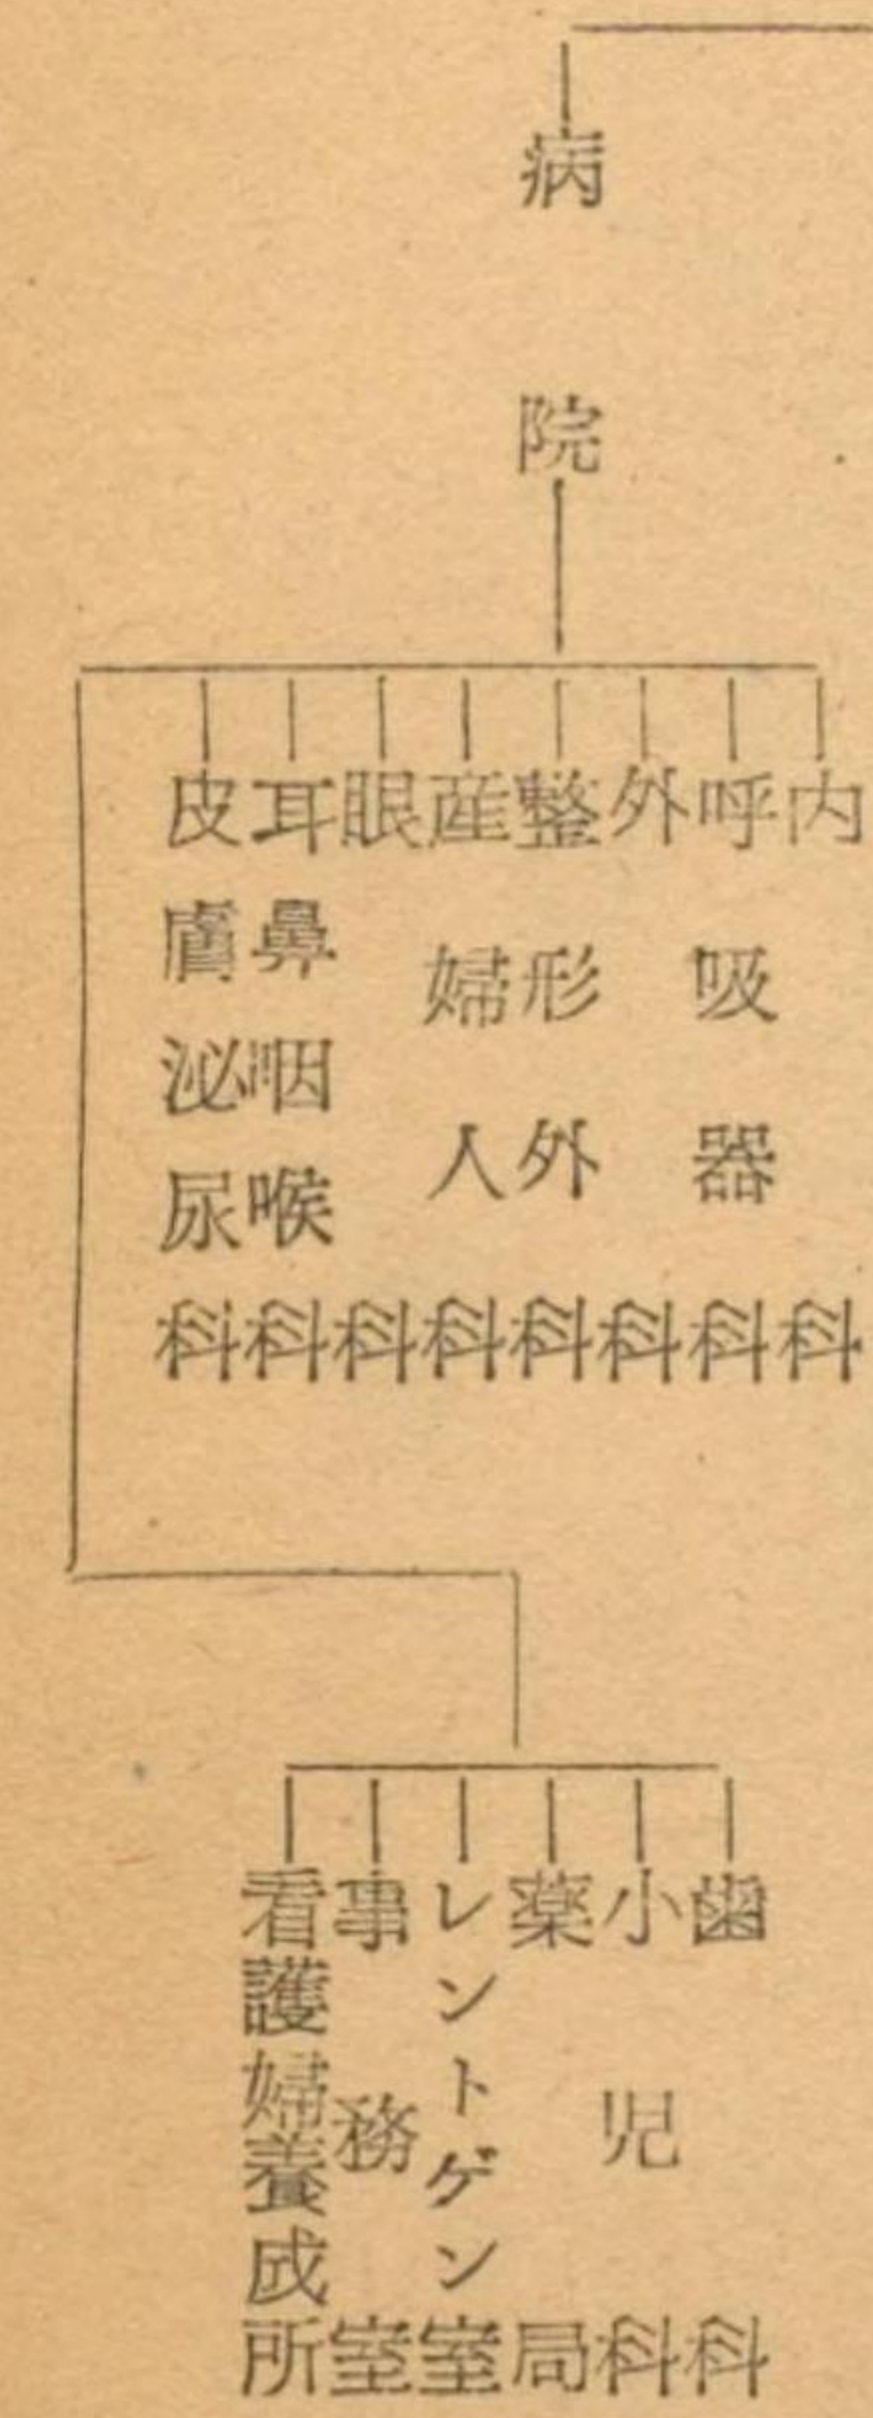 病院
内科
呼吸器科
外科
整形外科
産婦人科
眼科
耳鼻咽喉科
皮膚泌尿科
歯科
小児科
薬局
レントゲン室
事務室
看護婦養成所